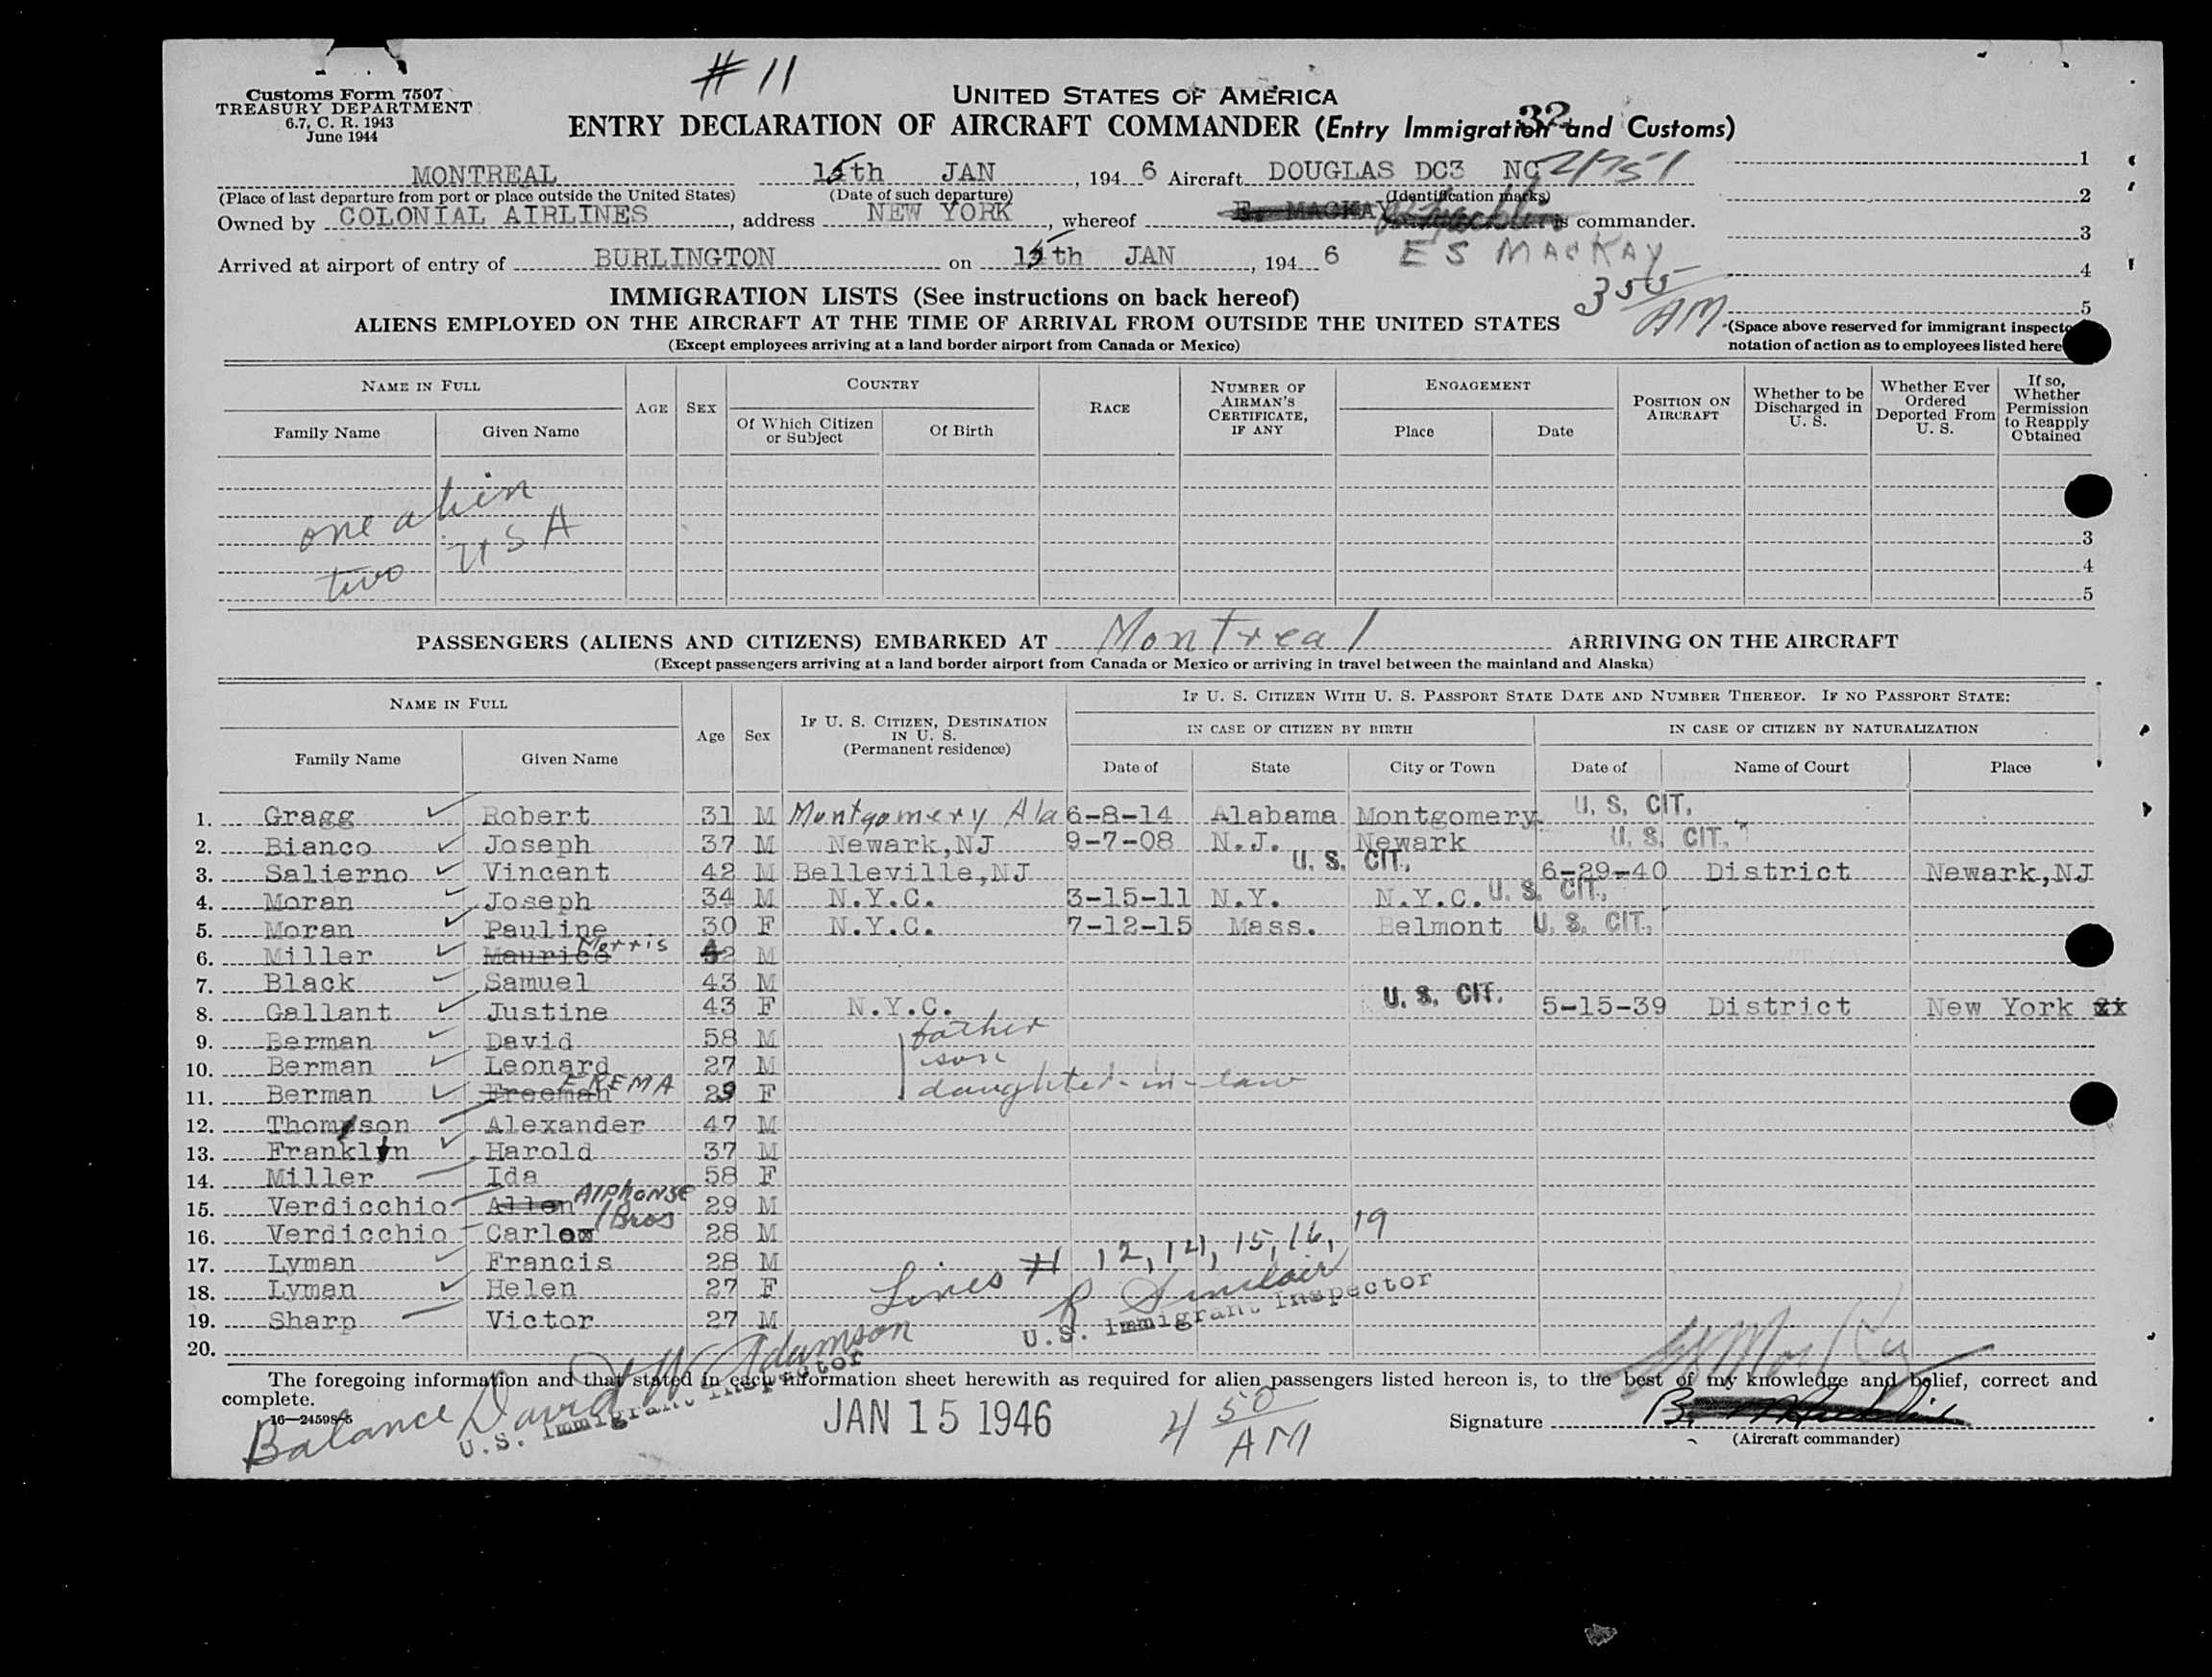 # 11
Customs Form 7507
TREASURY DEPARTMENT
6.7, C. R. 1943
June 1944
UNITED STATES OF AMERICA
ENTRY DECLARATION OF AIRCRAFT COMMANDER (Entry Immigration and Customs)
32
MONTREAL 15th JAN , 194 6 Aircraft DOUGLAS DC3 NC 21751 1
(Place of last departure from port or place outside the United States) (Date of such departure) (Identification marks) 2
Owned by COLONIAL AIRLINES , address NEW YORK , whereof E. MACKAY is commander.
E S MACKAY 3
Arrived at airport of entry of BURLINGTON on 15th JAN , 194 6 4
355 AM 5
IMMIGRATION LISTS (See instructions on back hereof)
ALIENS EMPLOYED ON THE AIRCRAFT AT THE TIME OF ARRIVAL FROM OUTSIDE THE UNITED STATES
(Except employees arriving at a land border airport from Canada or Mexico)
(Space above reserved for immigrant
notation of action as to employees listed here
NAME IN FULL AGE SEX COUNTRY RACE NUMBER OF AIRMAN'S CERTIFICATE, IF ANY ENGAGEMENT POSITION ON AIRCRAFT Whether to be Discharged in U. S. Whether Ever Ordered Deported From U. S. If so, Whether Permission to Reapply Obtained
Family Name Given Name Of Which Citizen or Subject Of Birth Place Date
one alien
two USA
3
4
5
PASSENGERS (ALIENS AND CITIZENS) EMBARKED AT Montreal ARRIVING ON THE AIRCRAFT
(Except passengers arriving at a land border airport from Canada or Mexico or arriving in travel between the mainland and Alaska)
NAME IN FULL Age Sex IF U. S. CITIZEN, DESTINATION IN U. S. (Permanent residence) IF U. S. CITIZEN WITH U. S. PASSPORT STATE DATE AND NUMBER THEREOF. IF NO PASSPORT STATE:
IN CASE OF CITIZEN BY BIRTH IN CASE OF CITIZEN BY NATURALIZATION
Family Name Given Name Date of State City or Town Date of Name of Court Place
1. Gragg Robert 31 M Montgomery Ala 6-8-14 Alabama Montgomery U. S. CIT.
2. Bianco Joseph 37 M Newark,NJ 9-7-08 N.J. Newark U. S. CIT.
3. Salierno Vincent 42 M Belleville,NJ U. S. CIT. 6-29-40 District Newark,NJ
4. Moran Joseph 34 M N.Y.C. 3-15-11 N.Y. N.Y.C. U. S. CIT.
5. Moran Pauline 30 F N.Y.C. 7-12-15 Mass. Belmont U. S. CIT.
6. Miller Maurice Morris 42 M
7. Black Samuel 43 M
8. Gallant Justine 43 F N.Y.C. U. S. CIT. 5-15-39 District New York
9. Berman David 58 M father
10. Berman Leonard 27 M son
11. Berman Freeman FREMA 29 F daughter-in-law
12. Thomson Alexander 47 M
13. Franklin Harold 37 M
14. Miller Ida 58 F
15. Verdicchio Allen Alphonse 29 M
16. Verdicchio Carlo Bros 28 M
17. Lyman Francis 28 M
18. Lyman Helen 27 F
19. Sharp Victor 27 M
20.
Lines # 12, 14, 15, 16, 19
R Sinclair
U.S. Immigrant Inspector
The foregoing information and that stated in each information sheet herewith as required for alien passengers listed hereon is, to the best of my knowledge and belief, correct and
complete.
16—24598-5
Balance David W Adamson
U.S. Immigrant Inspector
JAN 15 1946
4 50 AM
Signature
(Aircraft commander)